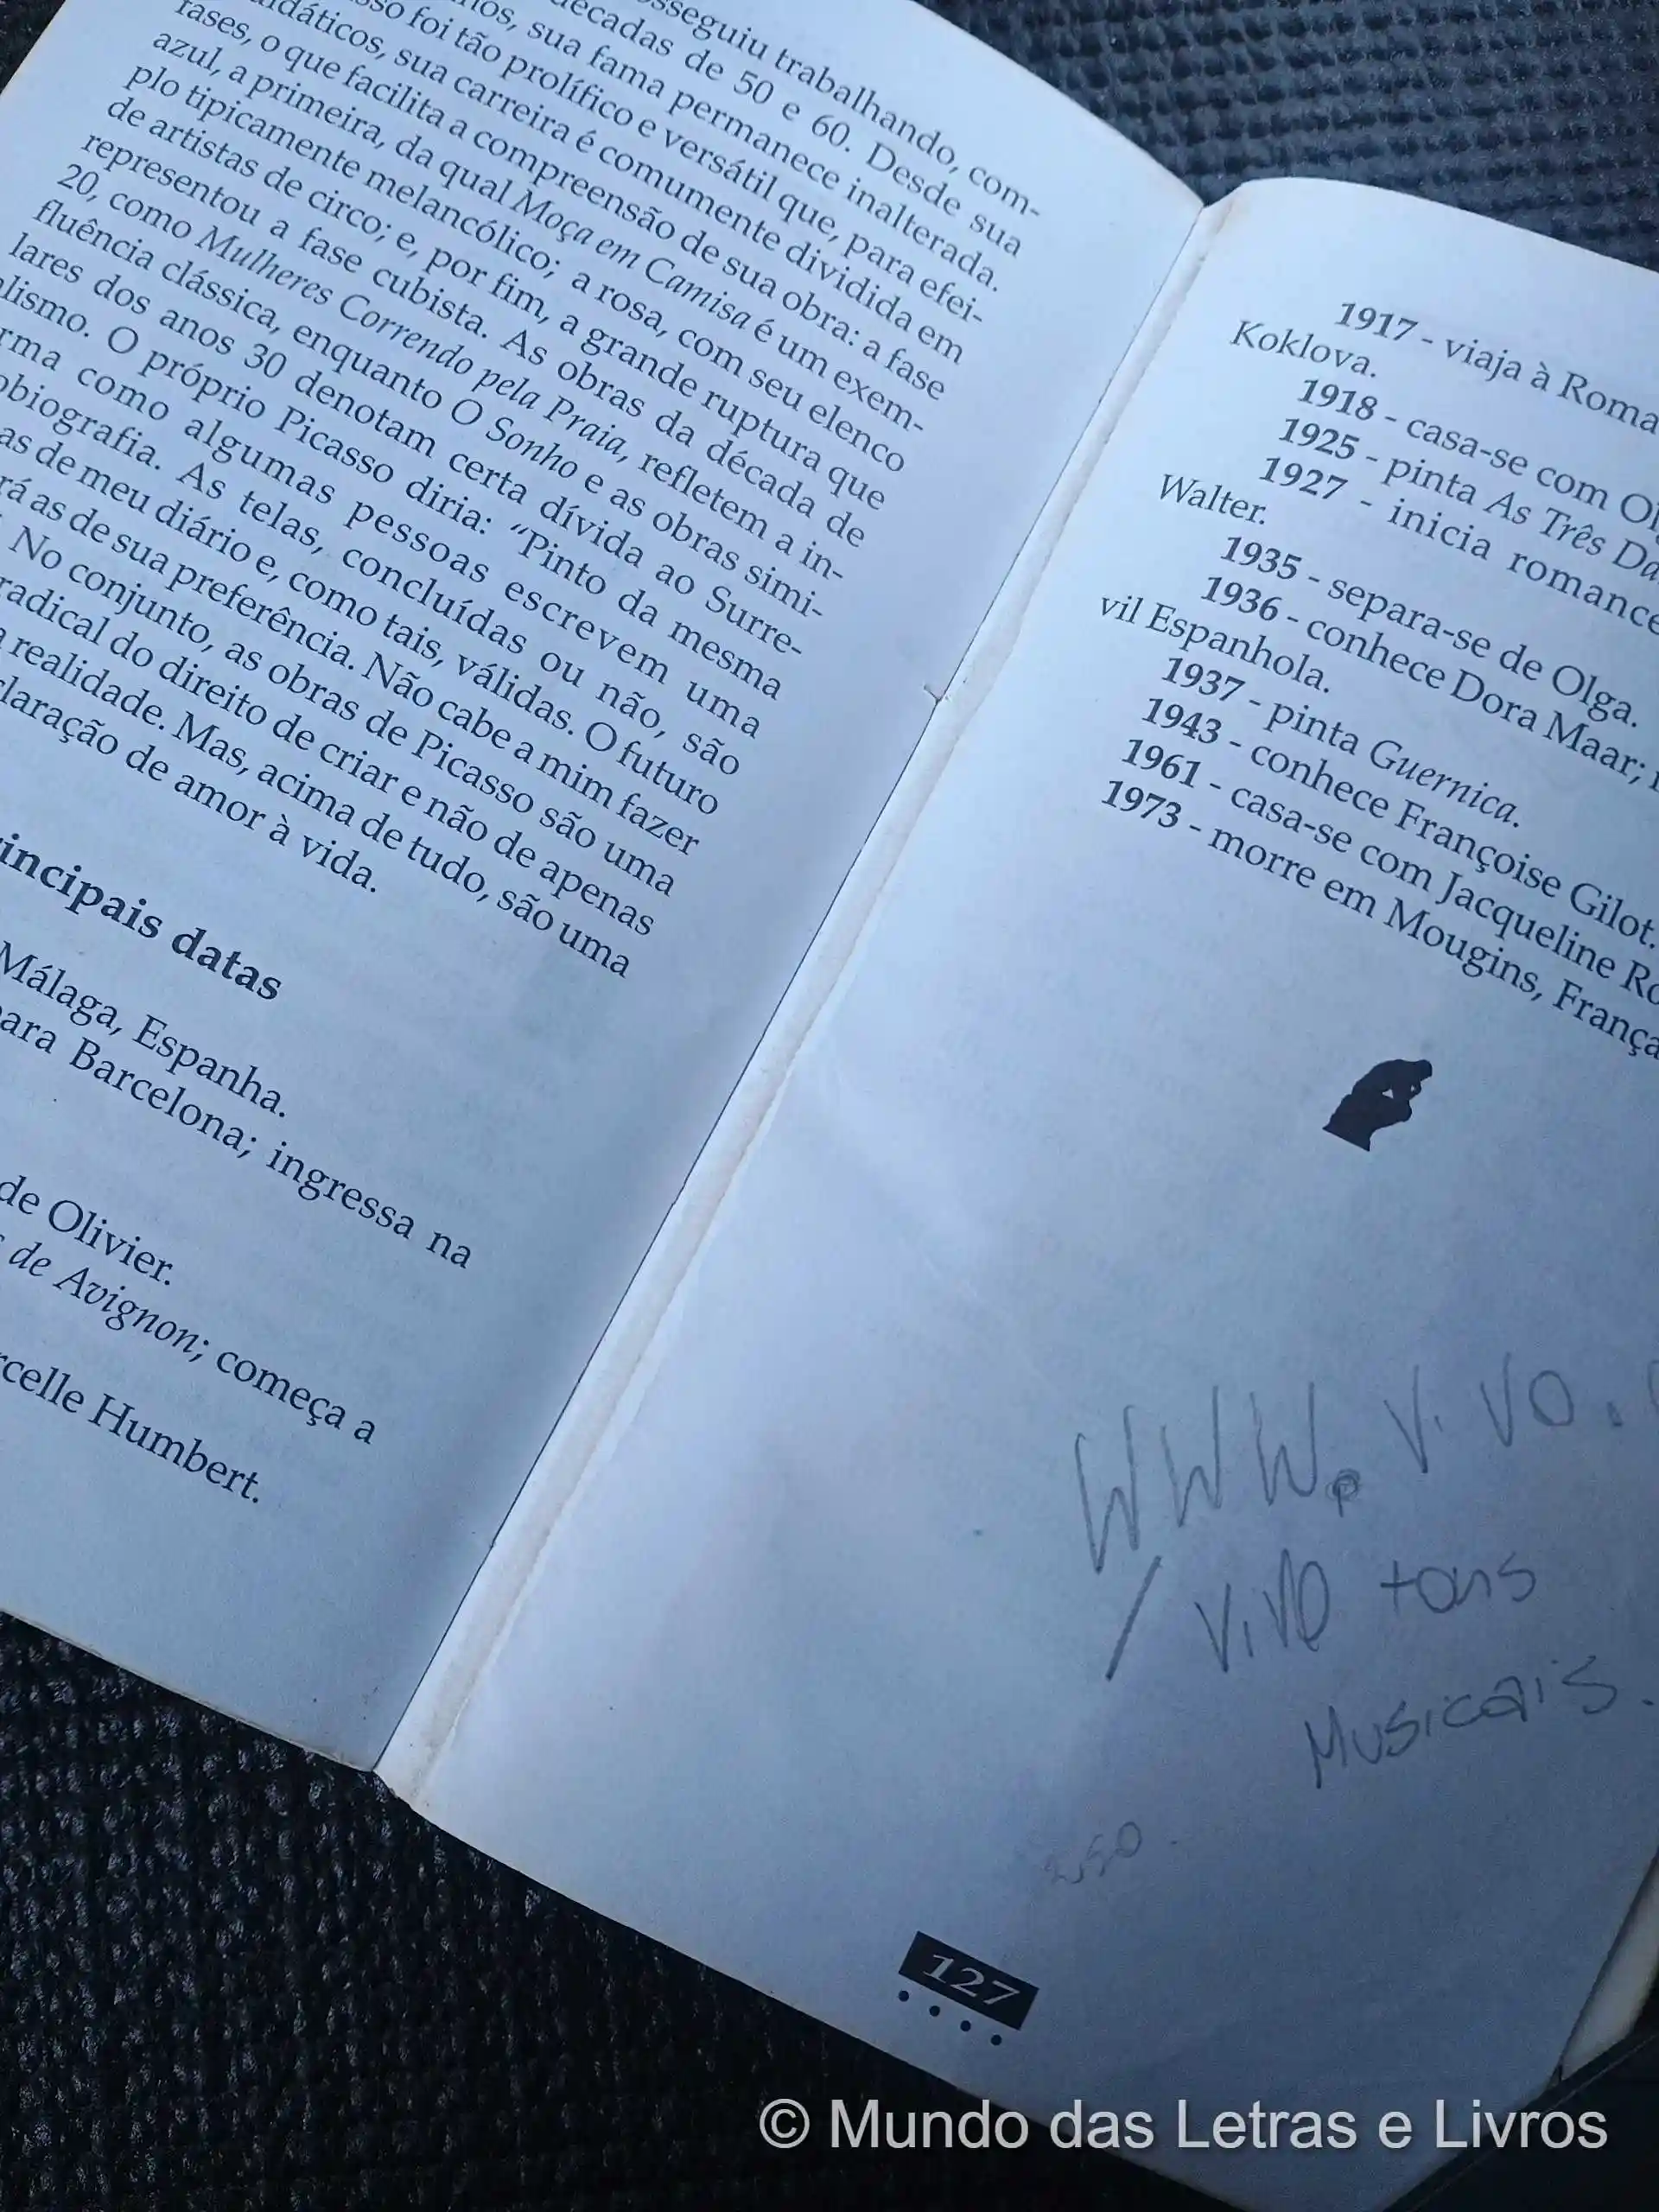 osseguiu trabalhando, com-
décadas de 50 e 60. Desde sua
sua fama permanece inalterada.
foi tão prolífico e versátil que, para efei-
sua carreira é comumente dividida em
o que facilita a compreensão de sua obra: a fase
azul, a primeira, da qual Moça em Camisa é um exem-
plo tipicamente melancólico; a rosa, com seu elenco
de artistas de circo; e, por fim, a grande ruptura que
representou a fase cubista. As obras da década de
20, como Mulheres Correndo pela Praia, refletem a in-
fluência clássica, enquanto O Sonho e as obras simi-
lares dos anos 30 denotam certa dívida ao Surre-
alismo. O próprio Picasso diria: “Pinto da mesma
rma como algumas pessoas escrevem uma
obiografia. As telas, concluídas ou não, são
as de meu diário e, como tais, válidas. O futuro
rá as de sua preferência. Não cabe a mim fazer
No conjunto, as obras de Picasso são uma
radical do direito de criar e não de apenas
a realidade. Mas, acima de tudo, são uma
claração de amor à vida.
rincipais datas
Málaga, Espanha.
para Barcelona; ingressa na
de Olivier.
de Avignon; começa a
rcelle Humbert.
1917 - viaja à Roma
Koklova.
1918 - casa-se com Ol
1925 - pinta As Três Da
1927 - inicia romance
Walter.
1935 - separa-se de Olga.
1936 - conhece Dora Maar;
vil Espanhola.
1937 - pinta Guernica.
1943 - conhece Françoise Gilot.
1961 - casa-se com Jacqueline Ro
1973 - morre em Mougins, França
WWW. ViVO.
/ ViVO tons
Musicais.
127
© Mundo das Letras e Livros